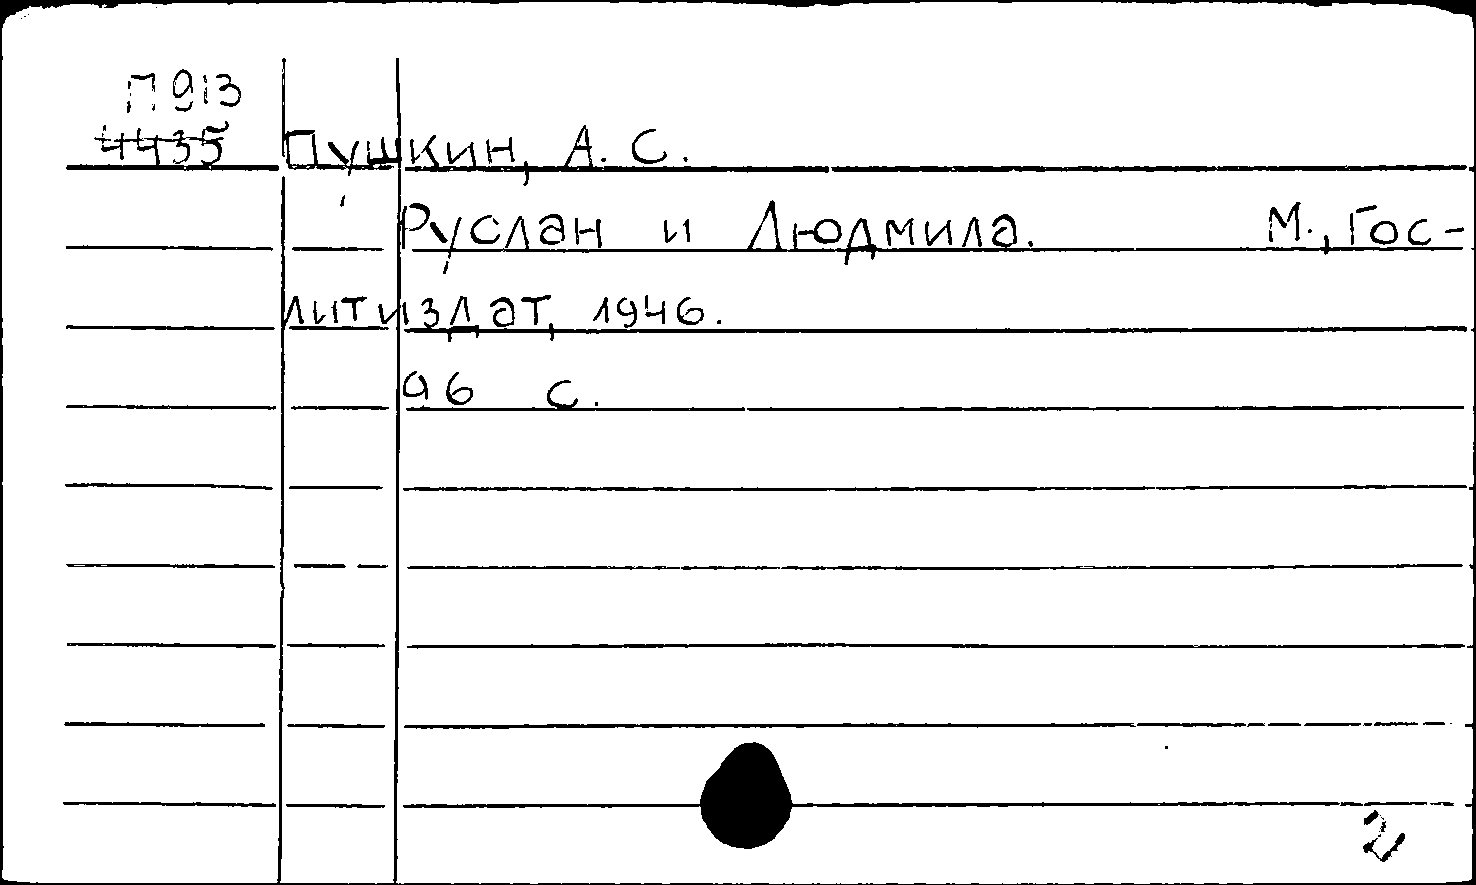 П 913
4435 Пушкин, А. С.
Руслан и Людмила. М., Гос-
литиздат, 1946.
96 с.
2